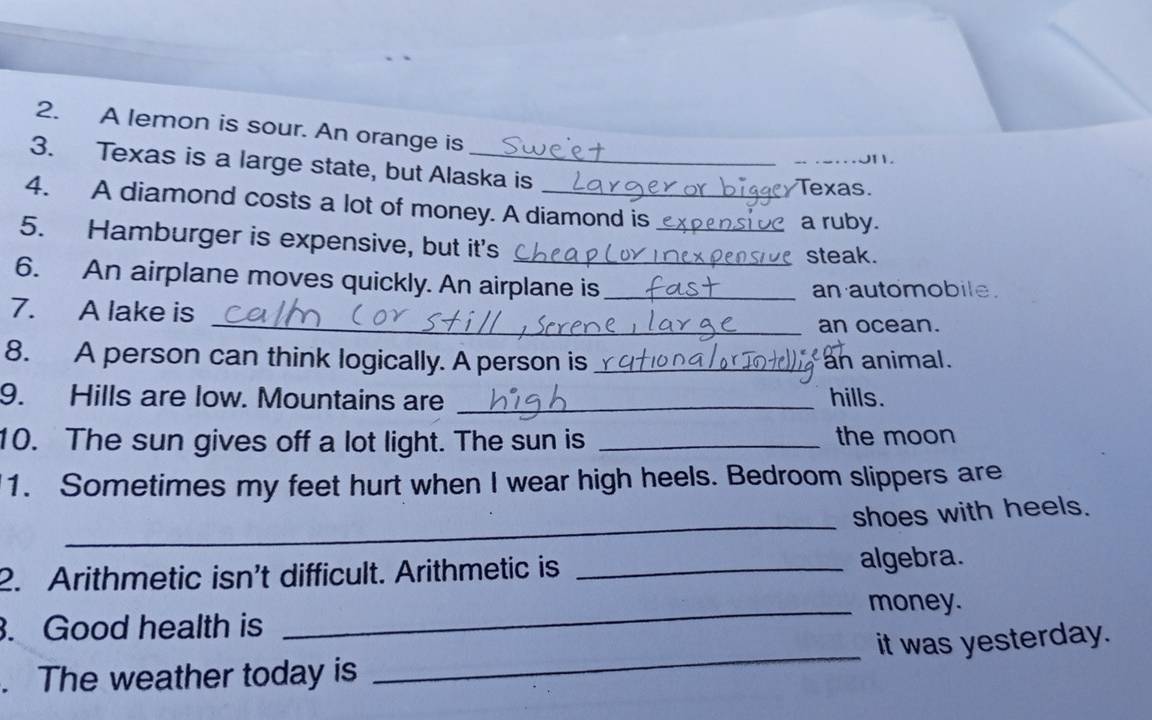 2. A lemon is sour. An orange is sweet
3. Texas is a large state, but Alaska is Larger or bigger Texas.
4. A diamond costs a lot of money. A diamond is expensive a ruby.
5. Hamburger is expensive, but it's Cheap (or inexpensive steak.
6. An airplane moves quickly. An airplane is fast an automobile.
7. A lake is calm (or still, serene, large an ocean.
8. A person can think logically. A person is rational or Intelligent an animal.
9. Hills are low. Mountains are high hills.
10. The sun gives off a lot light. The sun is the moon
1. Sometimes my feet hurt when I wear high heels. Bedroom slippers are
shoes with heels.
2. Arithmetic isn't difficult. Arithmetic is algebra.
3. Good health is money.
. The weather today is it was yesterday.